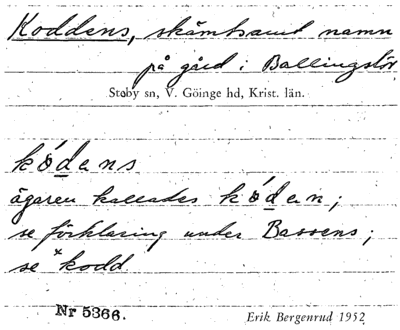 Koddens, skämtsamt namn
på gård i Ballingslöv
Stoby sn, V. Göinge hd, Krist. län.
kódens
ägaren kallades kóden;
se förklaring under Bassens;
se *kodd
Nr 5366.
Erik Bergenrud 1952